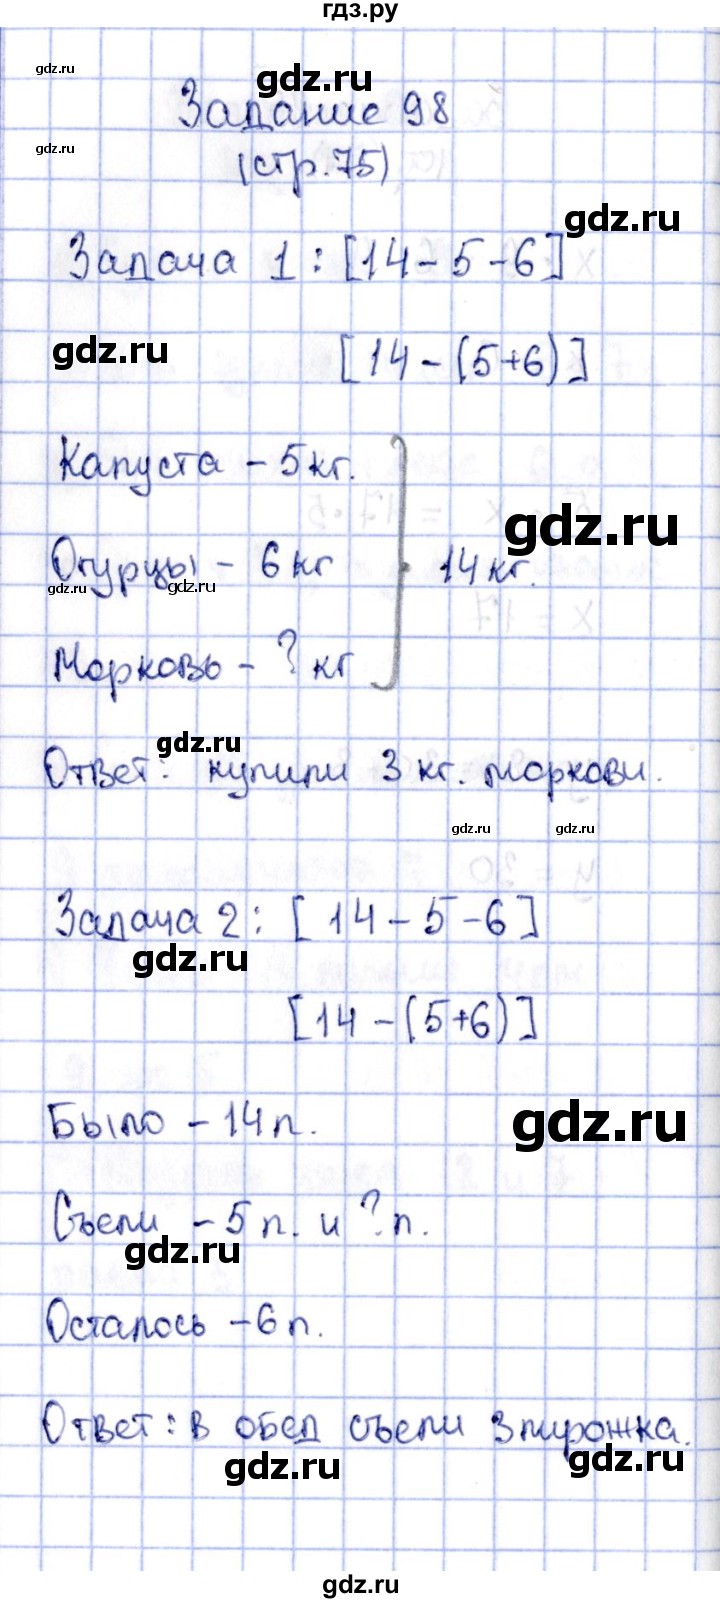 гдз.ру
gdz.ru
gdz.ru
Задание 98
gdz.ru
(стр.75)
gdz.ru
Задача 1: [14-5-6]
gdz.ru
[14-(5+6)]
Капуста - 5кг.
gdz.ru
Огурцы - 6 кг
14 кг.
gdz.ru
gdz.ru
Морковь - ? кг
gdz.ru
Ответ: купили 3 кг. моркови.
gdz.ru
gdz.ru
Задача 2: [14-5-6]
gdz.ru
[14-(5+6)]
Было - 14 п.
gdz.ru
Съели - 5 п. и ? п.
gdz.ru
Осталось - 6 п.
Ответ: в обед съели 3 пирожка.
gdz.ru
gdz.ru
gdz.ru